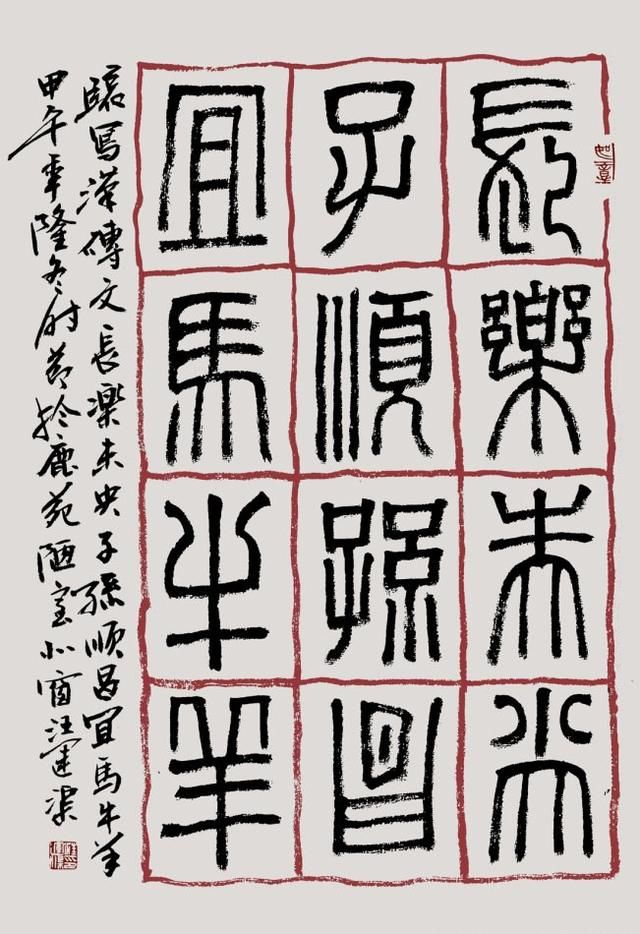 長樂未央
子順孫昌
宜馬牛羊
臨寫漢磚文長樂未央子孫順昌宜馬牛羊
甲午年隆冬时节於鹿苑陋室北窗汪運渠